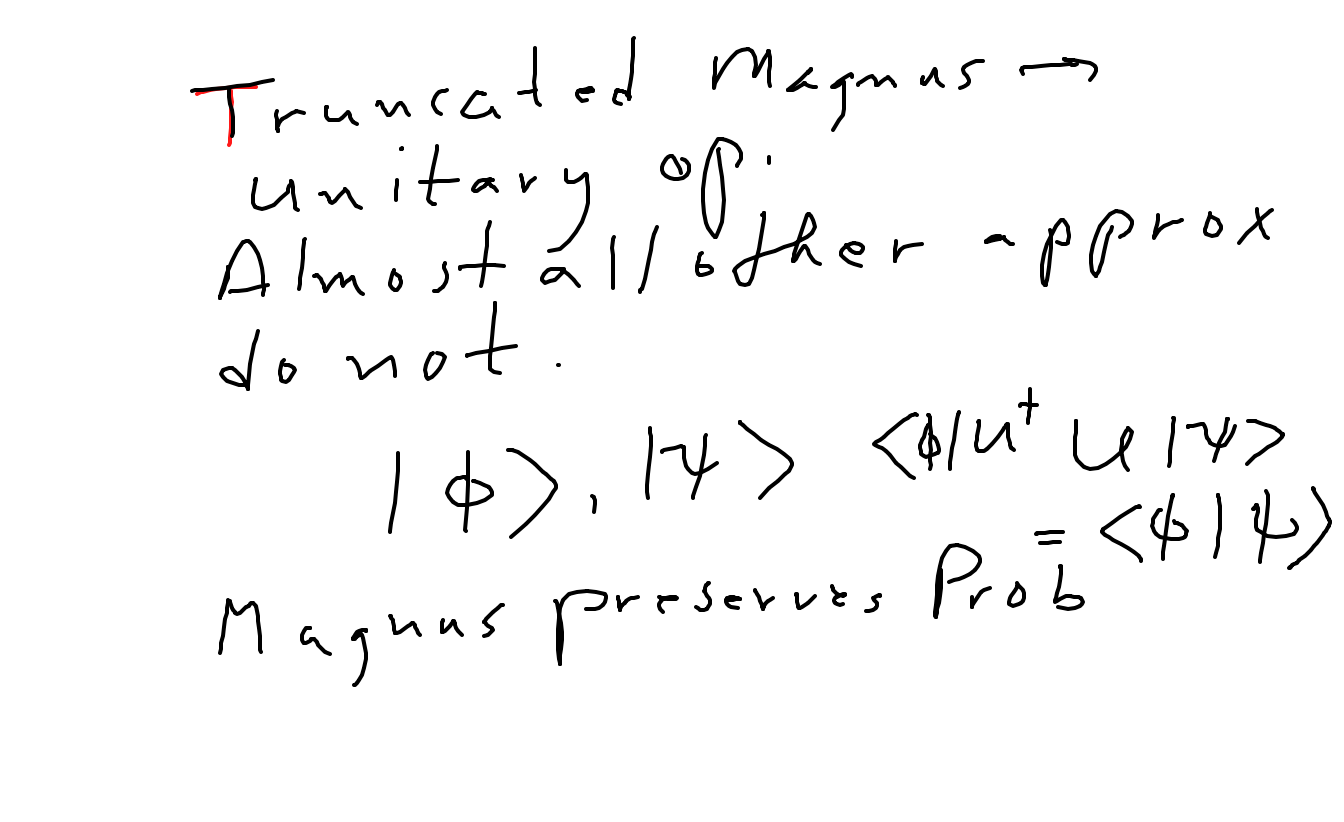 Truncated Magnus →
unitary op.
Almost all other approx
do not.
|ϕ⟩, |ψ⟩ <ϕ|U† U|ψ>
= <ϕ|ψ>
Magnus preserves Prob